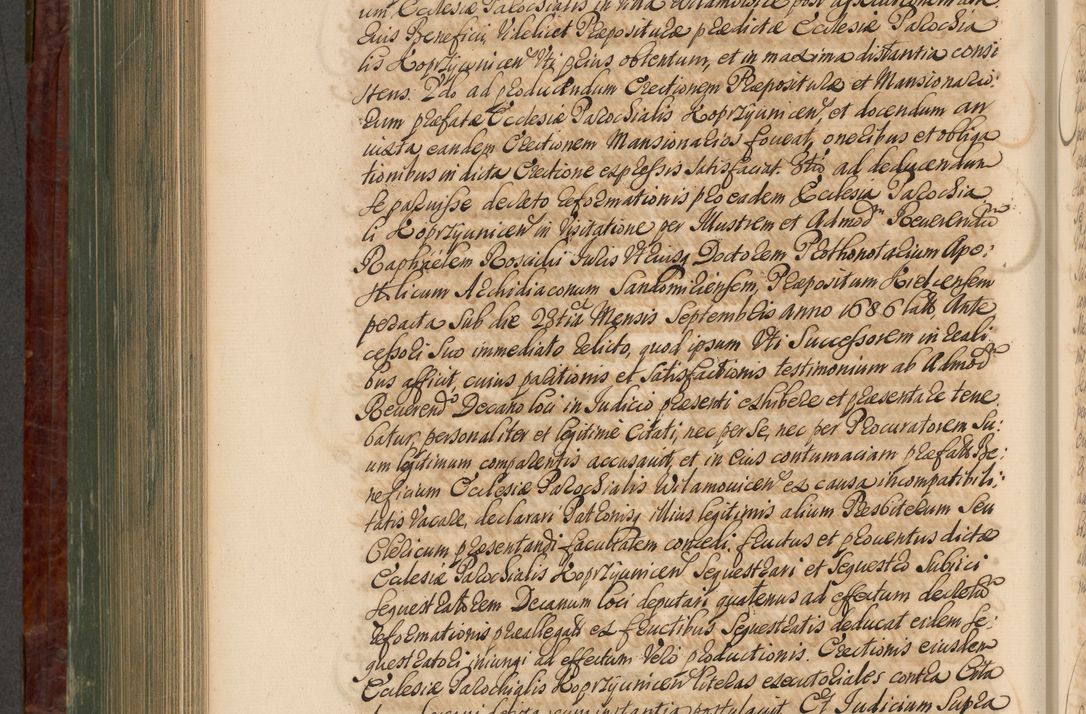 um Ecclesiæ Parochialis in Villa Wilamowice post assecutionem alte
rius Beneficii, Videlicet Præposituræ prædictæ Ecclesiæ Parochia
lis Koprzÿunicen Vti prius obtentum, et in maxima distantia consi
stens. 2do ad producendum Erectionem Præposituræ et Mansionario:
rum præfatæ Ecclesiæ Parochialis Koprzÿunicen, et docendum an
iuxta eandem Erectionem Mansionarios foueat, oneribus et obliga
tionibus in dicta Erectione expressis satisfaciat. 3tio ad deducendum
se paruisse decreto reformationis pro eadem Ecclesia Parochia
li Koprzÿunicen in Visitatione per Illustrem et Admodm Reuerendum
Raphaëlem Roscialis Iuris Vtriusq Doctorem Prothonotarium Apo:
stolicum Archidiaconum Sandomiriensem, Præpositum Kielcensem
peracta sub die 23tia Mensis Septembris anno 1686 lato, Ante
cessori suo immediato relicto, quod ipsum Vti Successorem in reali
bus afficit, cuius paritionis et satisfactionis testimonium ab Admodm
Reuerendo Decano loci in Iudicio præsenti exhibere et præsentare tene
batur, personaliter et legitime Citati, nec per se, nec per Procuratorem su:
um legitimum comparentis accusauit, et in eius contumaciam præfatum Be:
neficium Ecclesiæ Parochialis Wilamouicen ex causa incompatibili:
tatis Vacare, declarari Patronisq illius legitimis alium Presbiterum seu
Clericum præsentandi facultatem concedi, fructus et prouentus dictæ
Ecclesiæ Parochialis Koprzÿunicen sequestrari et sequestro subiici
sequestratorem Decanum loci deputari, quatenus ad effectum decretum
reformationis præallegatum ex fructibus sequestratis deducat eidem se:
questratori iniungi ad effectum Vero productionis. Erectionis eiusdem
Ecclesiæ Parochialis Koprzÿunicen literas executoriales contra Cita
instantia postulauit Et Iudicium supra